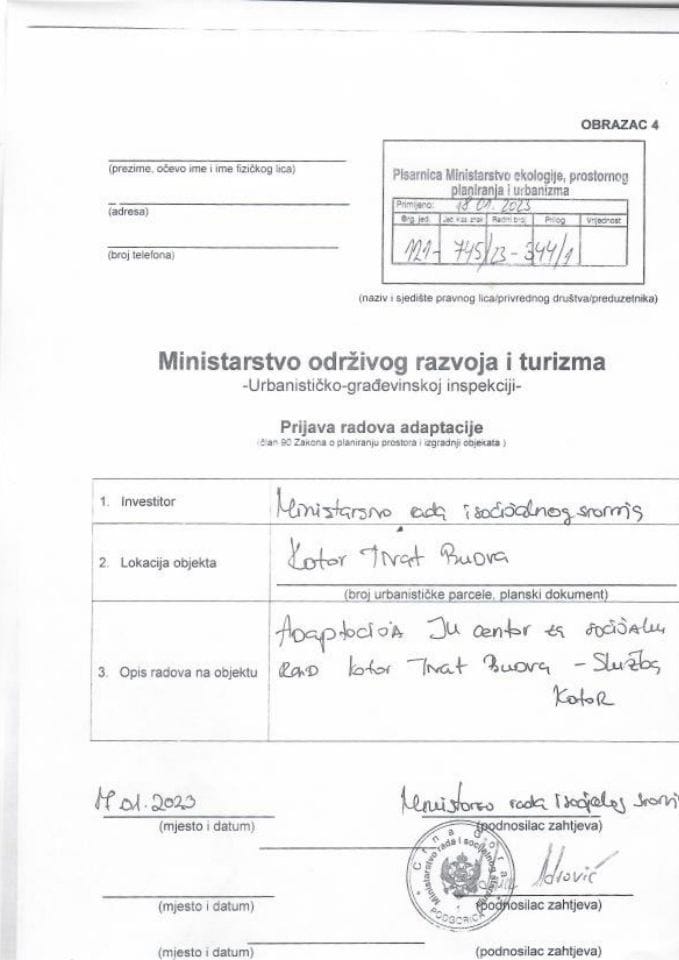 OBRAZAC 4
(prezime, očevo ime i ime fizičkog lica)
(adresa)
(broj telefona)
Pisarnica Ministarstvo ekologije, prostornog
planiranja i urbanizma
Primljeno: 18.01.2023
Org. jed. Jed. klas. znak Redni broj Prilog Vrijednost
121- 745/23-344/1
(naziv i sjedište pravnog lica/privrednog društva/preduzetnika)
Ministarstvo održivog razvoja i turizma
-Urbanističko-građevinskoj inspekciji-
Prijava radova adaptacije
(član 90 Zakona o planiranju prostora i izgradnji objekata )
1. Investitor
Ministarsvo rada i socijalnog
2. Lokacija objekta
Kotor Tivat Budva
(broj urbanističke parcele, planski dokument)
3. Opis radova na objektu
Adaptacija JU centar za socijalni
RAD Kotor Tivat Budva - Služba
Kotor
17.01.2023
(mjesto i datum)
rada i
(podnosilac zahtjeva)
Crna Gora
Ministarstvo rada i socijalnog staranja
PODGORICA
(mjesto i datum)
(podnosilac zahtjeva)
(mjesto i datum)
(podnosilac zahtjeva)